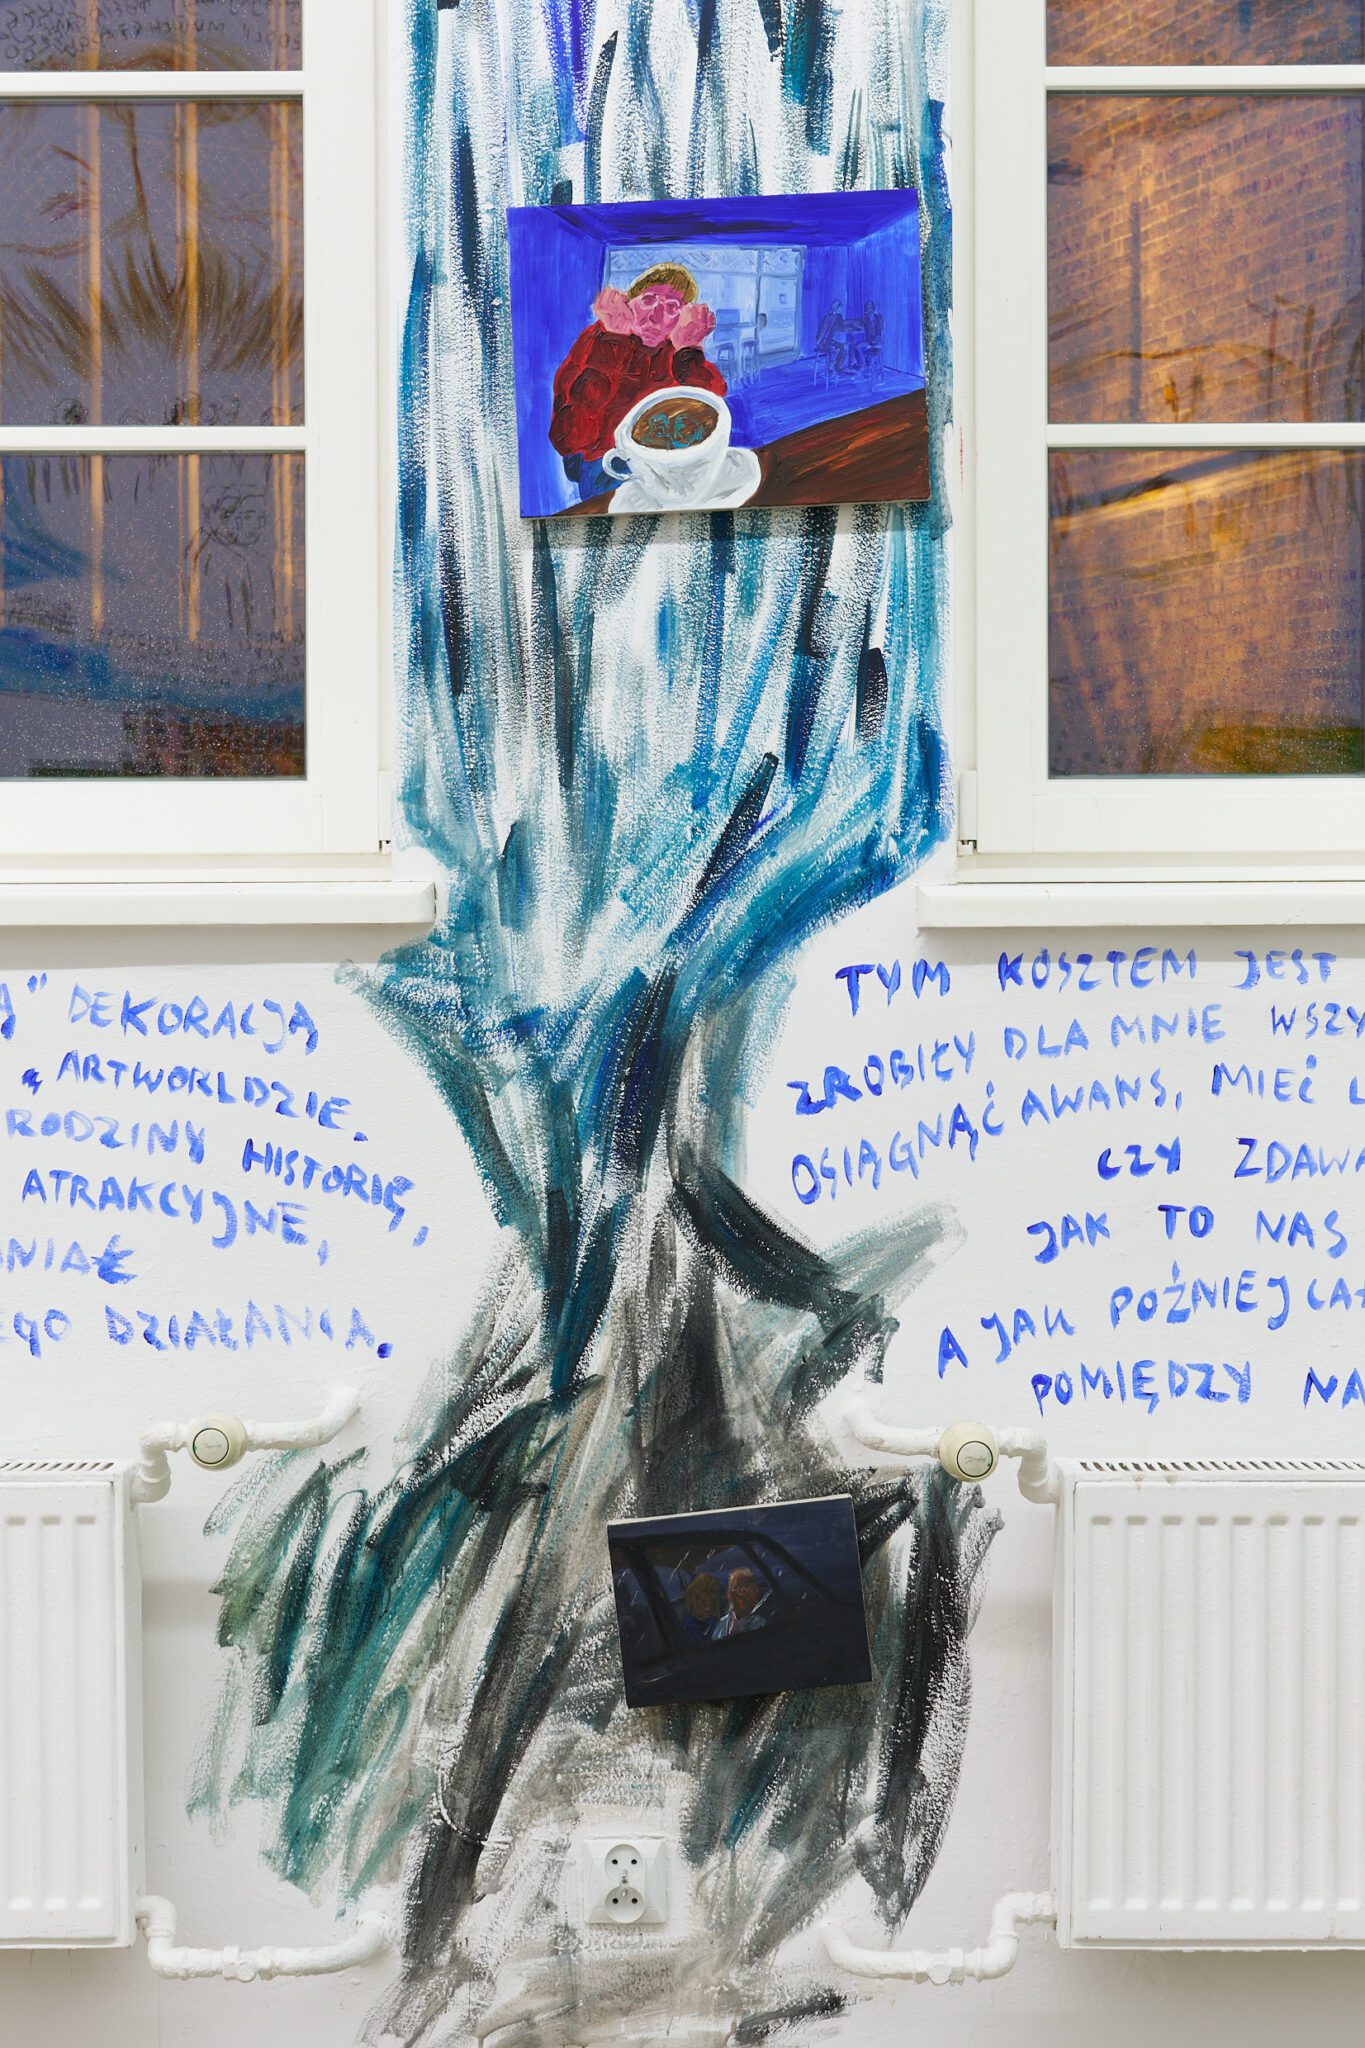 Ą" DEKORACJĄ
ARTWORLDZIE.
RODZINY HISTORIĘ,
ATRAKCYJNE,
ANIAŁ
EGO DZIAŁANIA.
TYM KOSZTEM JEST
ZROBIŁY DLA MNIE WSZY
OSIĄGNĄĆ AWANS, MIEĆ L
CZY ZDAWA
JAK TO NAS
A JAK POŹNIEJ CA
POMIĘDZY NA